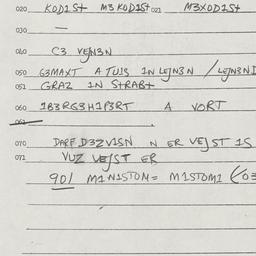 020 KOD1St M3KOD1St 021 M3XOD1St
030 —
040 C3 VEJN3N
050 G3MAXT A TU1S 1N LEJN3N / LEJN3N1
051 GRAZ 1N StRABt
060 1B3RG3H1P3RT A VORT
061
070 DARF D3ZV1SN N ER VEJST 1S
071 VUZ VEJST ER
901 M1N1STOM= M1STOM1 (03